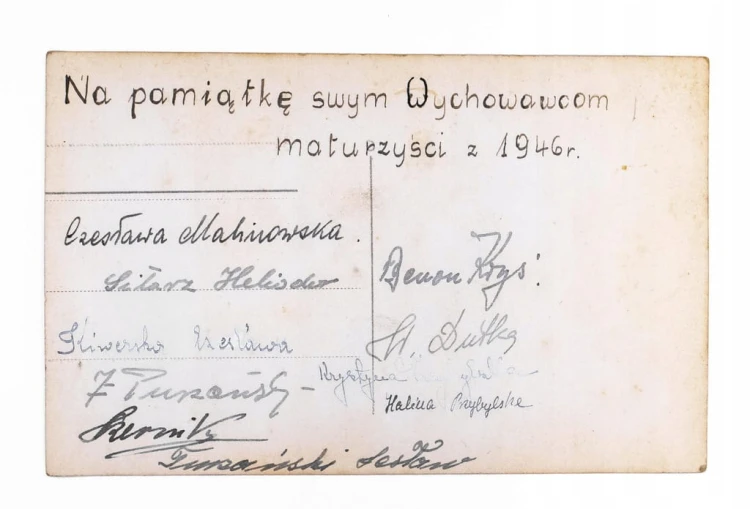 Na pamiątkę swym Wychowawcom
maturzyści z 1946 r.
Czesława Malinowska.
Sitarz Heliodor
Kiwerska Czesława
Z Turzański
Skernik
Turzański Lesław
Benon Kryś.
St. Dutka
Krystyna
Halina Przybylska